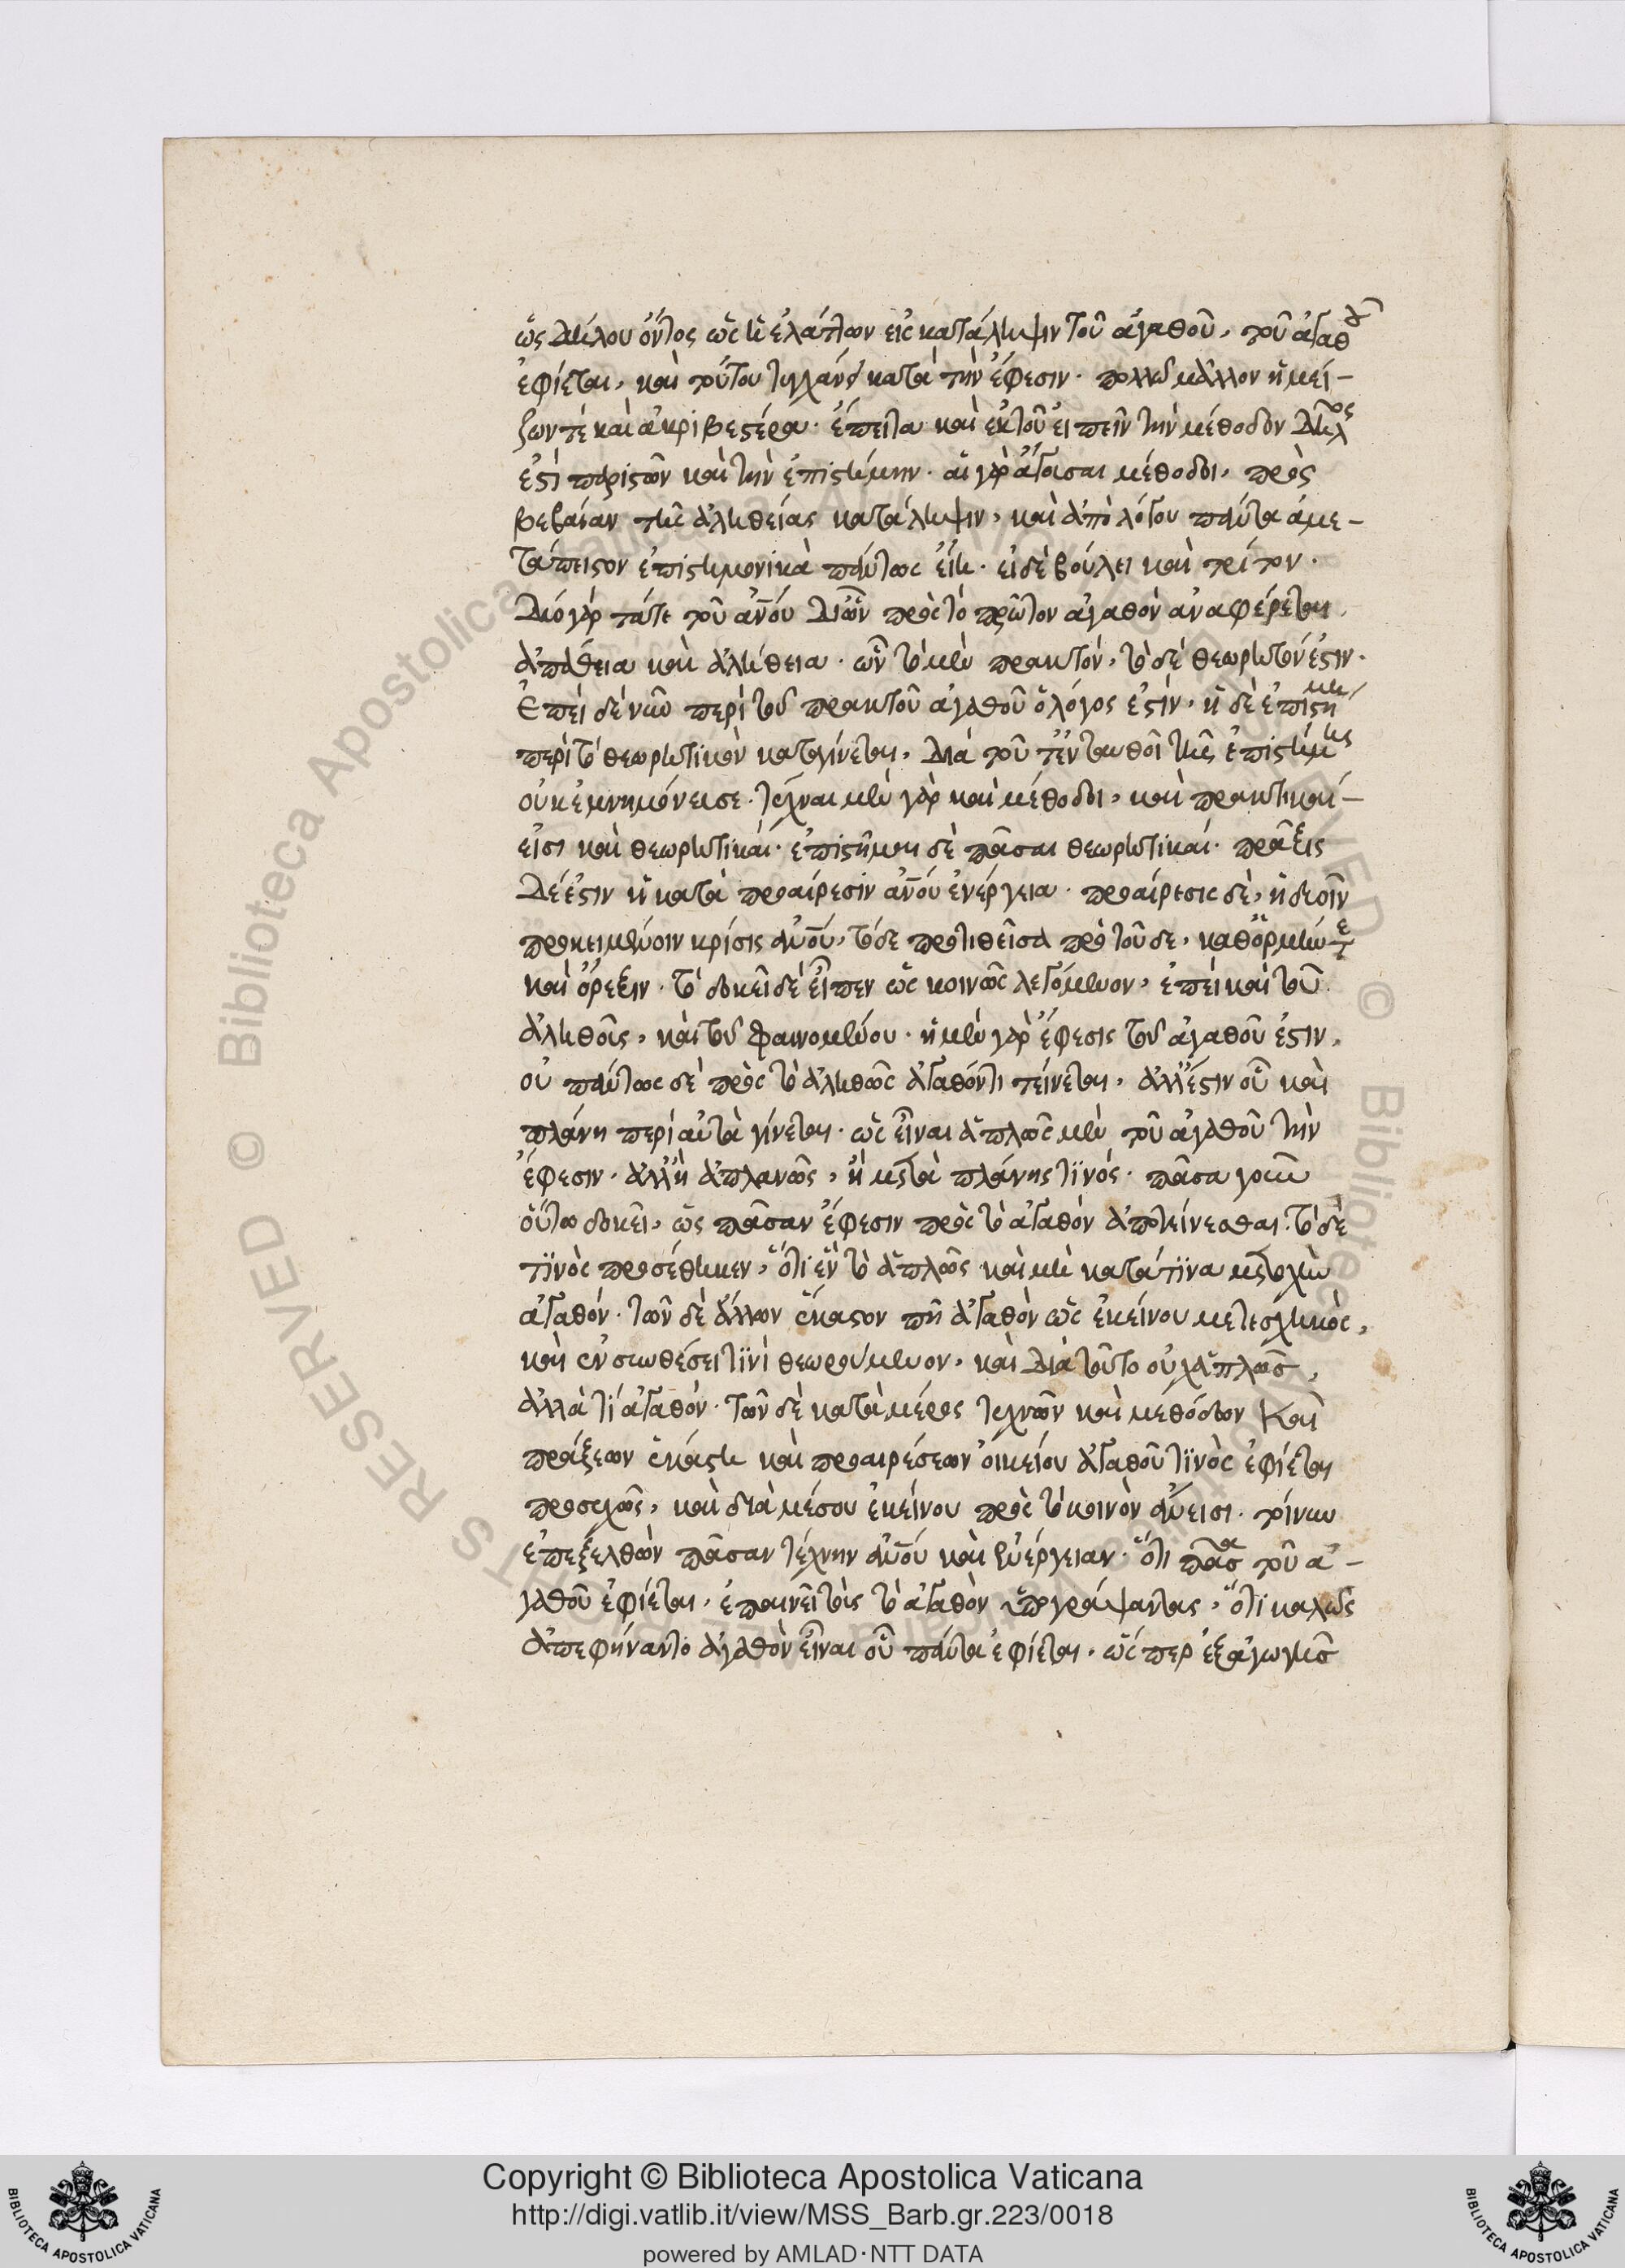 ὡς δήλου ὄντος ὡς ἡ ἐλάττων εἰς κατάληψιν τοῦ ἀγαθοῦ, τοῦ ἀγαθοῦ
ἐφίεται, καὶ τούτου τυγχάνει κατὰ τὴν ἔφεσιν. πολλῷ μᾶλλον ἡ μεί-
ζων τὲ καὶ ἀκριβεστέρα. ἔπειτα καὶ ἐκ τοῦ εἰπεῖν τὴν μέθοδον δῆλος
ἐστὶ παριστῶν καὶ τὴν ἐπιστήμην. αἱ γὰρ ἄγουσαι μέθοδοι, πρὸς
βεβαίαν τῆς ἀληθείας κατάληψιν, καὶ ἀπὸ λόγου πάντα ἀμε-
τάπειστον ἐπιστημονικὰ πάντως εἴη. εἰ δὲ βούλει καὶ τρίτον.
Δύο γὰρ τά τε τοῦ ἀνου δι' ὧν πρὸς τὸ πρῶτον ἀγαθὸν ἀναφέρεται
ἀπάθεια καὶ ἀλήθεια. ὧν τὸ μὲν πρακτόν, τὸ δὲ θεωρητόν ἐστιν.
Ἐπεὶ δὲ νῦν περὶ τοῦ πρακτοῦ ἀγαθοῦ ὁ λόγος ἐστίν, ἡ δὲ ἐπιστήμη
περὶ τὸ θεωρητικὸν καταγίνεται, διὰ τοῦτ' ἐνταυθοῖ τῆς ἐπιστήμης
οὐκ ἐμνημόνευσε. τέχναι μὲν γὰρ καὶ μέθοδοι, καὶ πρακτικαί-
εἰσι καὶ θεωρητικαί. ἐπιστῆμαι δὲ πᾶσαι θεωρητικαί. πρᾶξις
Δέ ἐστιν ἡ κατὰ προαίρεσιν ἀνου ἐνέργεια. προαίρεσις δὲ, ἡ δυοῖν
προκειμένοιν κρίσις αὐτοῦ, τόδε προτιθεῖσα πρὸ τοῦδε, καθ' ὁρμήν τε
καὶ ὄρεξιν. τὸ δοκεῖ δὲ εἶπεν ὡς κοινῶς λεγόμενον, ἐπεὶ καὶ τοῦ
ἀληθοῦς, καὶ τοῦ φαινομένου. ἡ μὲν γὰρ ἔφεσις τοῦ ἀγαθοῦ ἐστιν,
οὐ πάντως δὲ πρὸς τὸ ἀληθῶς ἀγαθόν τι τείνεται, ἀλλ' ἔστιν οὗ καὶ
πλάνη περὶ αὐτὰ γίνεται. ὡς εἶναι ἁπλῶς μὲν τοῦ ἀγαθοῦ τὴν
ἔφεσιν. ἀλλ' ἢ ἀπλανῶς, ἢ μετὰ πλάνης τινός. πᾶσα γοῦν
οὕτω δοκεῖ, ὡς πᾶσαν ἔφεσιν πρὸς τὸ ἀγαθὸν ἀποτείνεσθαι. τὸ δὲ
τινὸς προσέθηκεν, ὅτι ἓν τὸ ἁπλῶς καὶ μὴ κατά τινα μετοχὴν
ἀγαθόν. τῶν δὲ ἄλλων ἕκαστον πῆ ἀγαθὸν ὡς ἐκείνου μετεσχηκὸς,
καὶ ἐν συνθέσει τινὶ θεωρούμενον, καὶ διὰ τοῦτο οὐχ ἁπλῶς,
ἀλλὰ τί ἀγαθόν. τῶν δὲ κατὰ μέρος τεχνῶν καὶ μεθόδων καὶ
πράξεων ἑκάστη καὶ προαιρέσεων οἰκείου ἀγαθοῦ τινὸς ἐφίεται
προσεχῶς, καὶ διὰ μέσου ἐκείνου πρὸς τὸ κοινὸν ἄνεισι. τοίνυν
ἐπεξελθὼν πᾶσαν τέχνην ἀνου καὶ ἐνέργειαν. ὅτι πᾶσα τοῦ ἀ-
γαθοῦ ἐφίεται, ἐπαινεῖ τοὺς τὸ ἀγαθὸν ὑπογράψαντας, ὅτι καλῶς
ἀπεφήναντο ἀγαθὸν εἶναι οὗ πάντα ἐφίεται, ὥσπερ ἐξ ἀγωγῆς
Copyright © Biblioteca Apostolica Vaticana
http://digi.vatlib.it/view/MSS_Barb.gr.223/0018
powered by AMLAD·NTT DATA